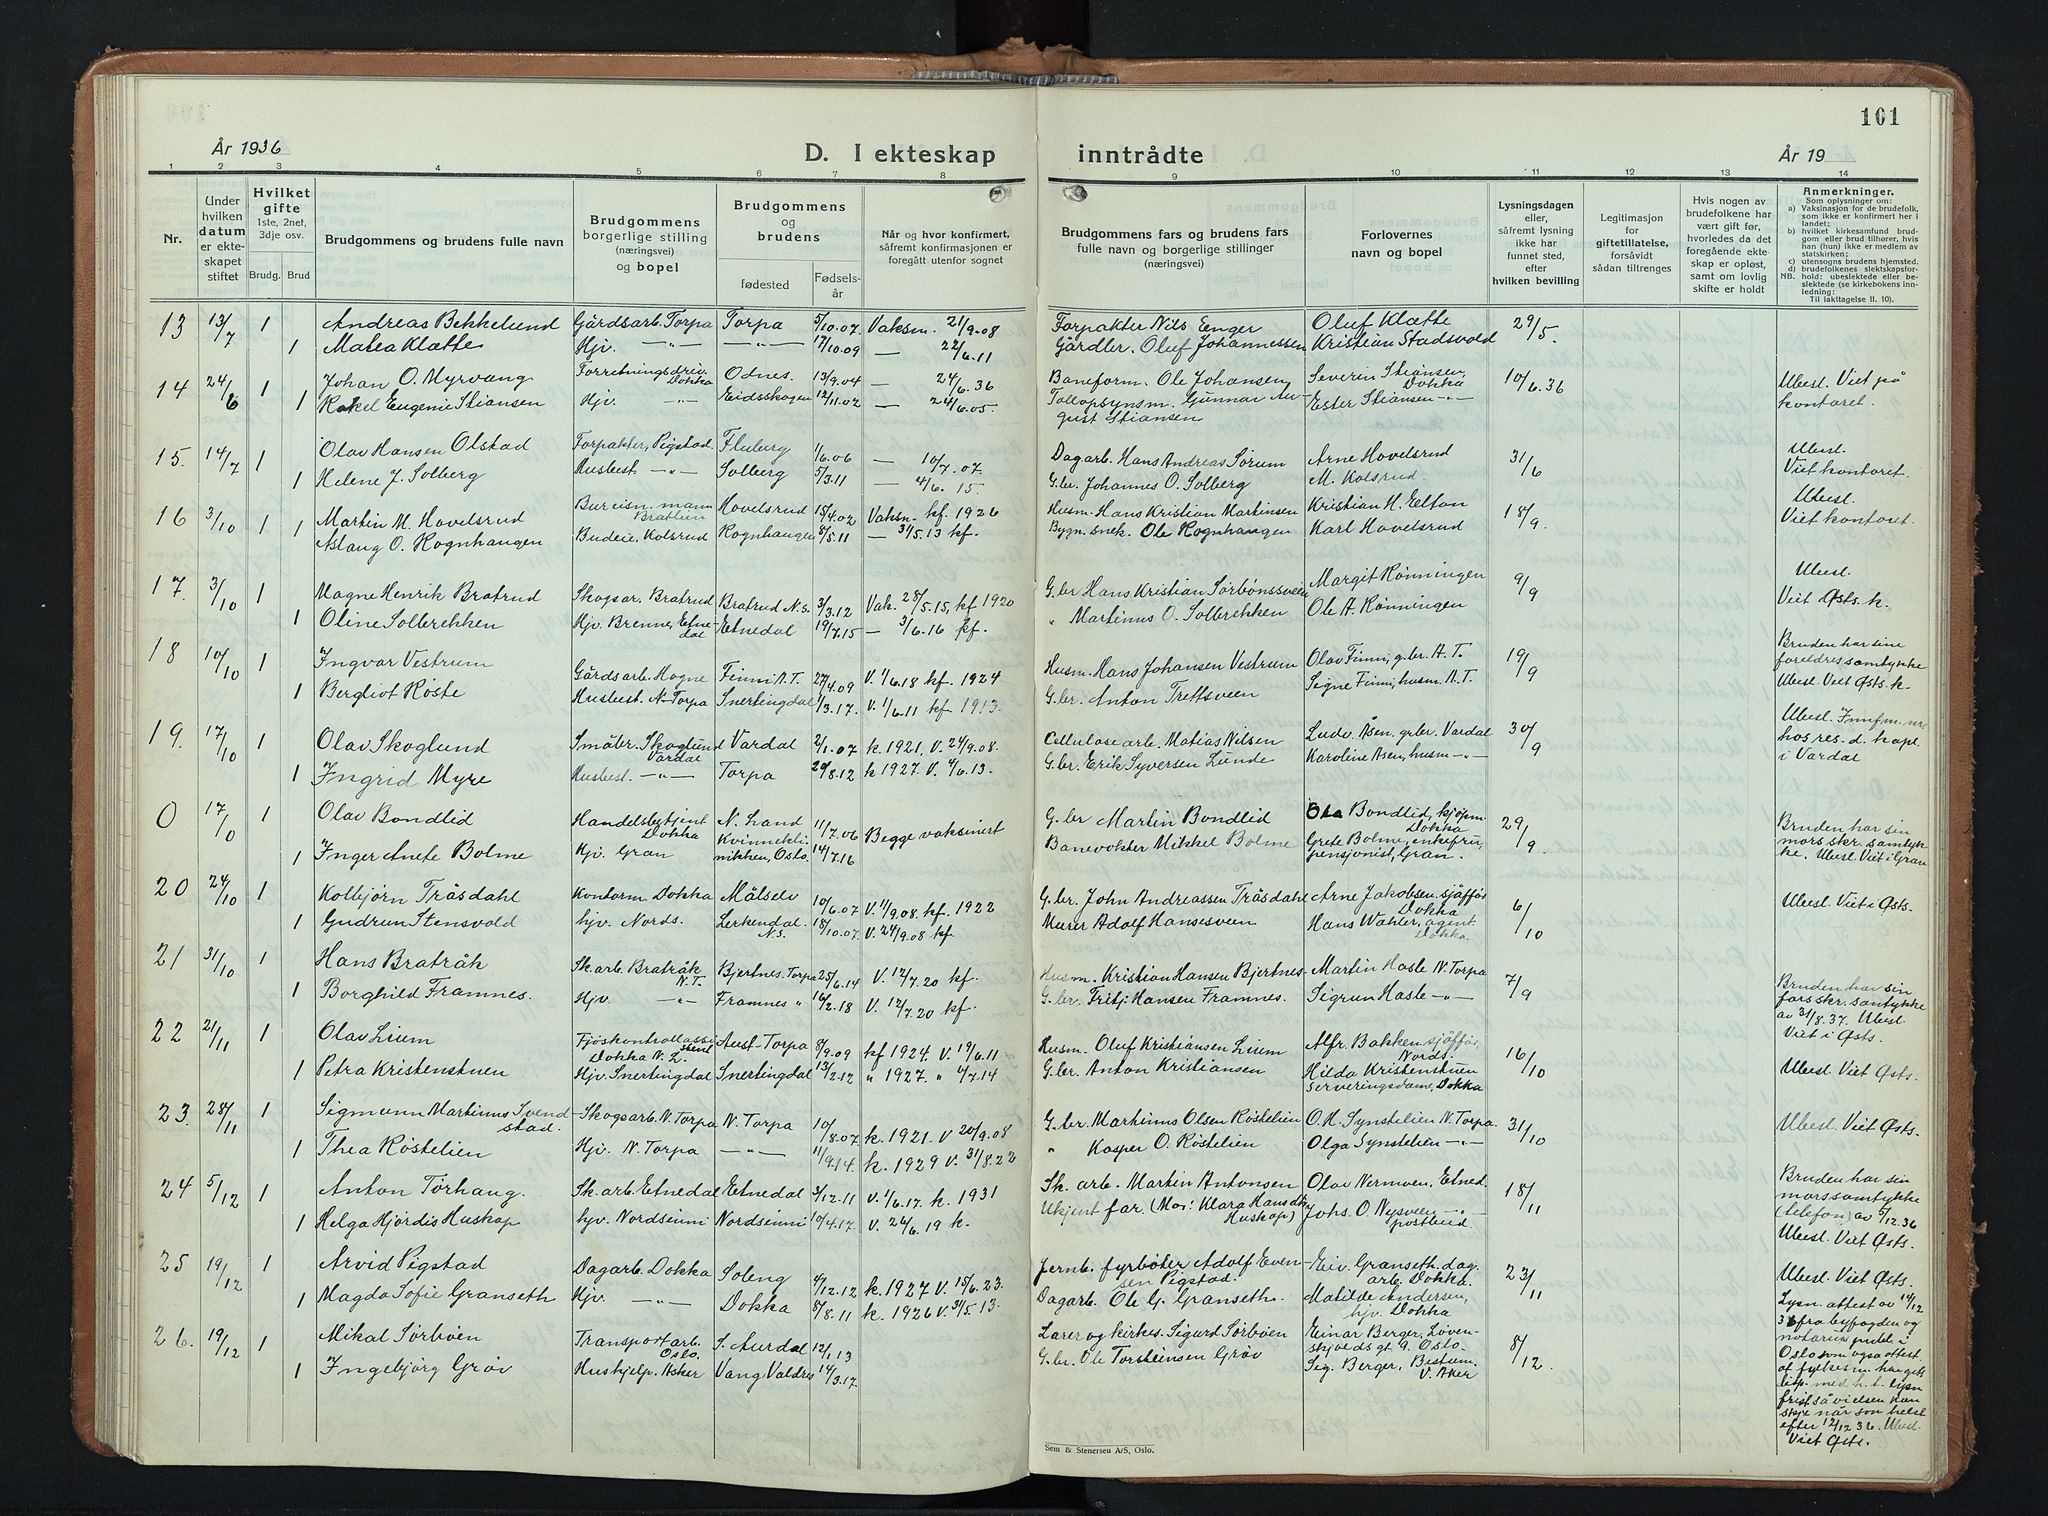 101
År 1936
D. I ekteskap inntrådte
År 19
1 2 3 4 5 6 7 8 9 10 11 12 13 14
Nr.
Under hvilken datum er ekteskapet stiftet
Hvilket gifte
1ste, 2net, 3dje osv.
Brudg. Brud
Brudgommens og brudens fulle navn
Brudgommens borgerlige stilling (næringsvei) og bopel
Brudgommens og brudens
fødested
Fødselsår
Når og hvor konfirmert, såfremt konfirmasjonen er foregått utenfor sognet
Brudgommens fars og brudens fars fulle navn og borgerlige stillinger (næringsvei)
Forlovernes navn og bopel
Lysningsdagen eller, såfremt lysning ikke har funnet sted, efter hvilken bevilling
Legitimasjon for giftetillatelse, forsåvidt sådan tiltrenges
Hvis nogen av brudefolkene har vært gift før, hvorledes da det foregående ekteskap er opløst, samt om lovlig skifte er holdt
Anmerkninger.
Som oplysning om:
a) Vaksinasjon for de brudefolk, som ikke er konfirmert her i landet;
b) hvilket kirkesamfund brudgom eller brud tilhører, hvis han (hun) ikke er medlem av statskirken;
c) utensogns brudens hjemsted.
d) brudefolkenes slektskapsforhold: ubeslektede eller beslektede (se kirkebokens innledning:
NB. Til iakttagelse II. 10).
13 13/7 1 Andreas Bekkelund Gårdsarb. Torpa Torpa 5/10.07 Vaksm. 21/9.08 Forpakter Nils Enger Oluf Klætte 29/5.
1 Matea Klætte Hjv. —"— —"— 17/10.09 — 22/6.11 Gårdbr. Oluf Johannessen Kristian Stadsvold
14 24/6 1 Johan O. Myrvang Forretningsdriv. Dokka Odnes. 13/9.04 — 24/6.36 Baneform. Ole Johansen Severin Stiansen, Dokka 10/6.36 Ubesl. Viet på kontoret.
1 Rakel Eugenie Stiansen Hjv. —"— Eidsskogen 12/11.02 — 24/6.05. Tollopsynsm. Gunnar August Stiansen Ester Stiansen —"—
15. 14/7 1 Olav Hansen Olstad Forpakter, Pigstad Fluberg 1/6.06 — 10/7.07. Dagarb. Hans Andreas Sørum Arne Hovelsrud 31/6 Ubesl. Viet kontoret.
1 Helene J. Solberg Husbest. —"— Solberg 5/3.11 — 4/6.15. G.br. Johannes O. Solberg M. Kolsrud
16 3/10 1 Martin M. Hovelsrud Bureisn. mann Bratlien Hovelsrud 15/4.02 Vaksn. kf. 1926 Husm. Hans Kristian Martinsen Kristian H. Eelton 18/9. Ubesl. Viet kontoret.
1 Aslaug O. Rognhaugen Budeie, Kolsrud Rognhaugen 8/5.11 — 31/5.13 kf. Bygn. snek. Ole Rognhaugen Karl Hovelsrud
17. 3/10 1 Magne Henrik Bratrud Skogsar. Bratrud Bratrud N.S. 3/3.12 Vak. 28/5.15, kf 1920 G.br Hans Kristian Sørbønssveen Margit Rønningen 9/9 Ubesl. Viet Østs. k.
1 Oline Solbrekken Hjv. Brenne, Etnedal Etnedal 19/7.15 — 3/6.16 kf. " Martinus O. Solbrekken Ole A. Rønningen
18 10/10 1 Ingvar Vestrum Gårdsarb. Hogne Finni A.T. 27/4.09 V. 1/6.18 kf. 1924 Husm. Hans Johansen Vestrum Olav Finni, g.br. A.T. 19/9 Bruden har sine foreldres samtykke Ubesl. Viet Østs. k.
1 Bergliot Røste Husbest. N-Torpa Snertingdal 1/3.17. V. 1/6.11 kf. 1913. G.br. Anton Trettsveen Signe Finni, husm. A.T.
19. 17/10 1 Olav Skoglund Småbr. Skoglund Vardal Vardal 2/1.07 k. 1921, V. 24/9.08. Cellulosearb. Matias Nilsen Ludv. Åsen, gr.br. Vardal 30/9 Ubesl. Innfm. nr. hos res. d. kapl. i Vardal
1 Ingrid Myre Husbest. —"— Torpa 29/8.12 k 1927. V. 4/6.13. G.br. Erik Syversen Lunde Karoline Åsen, husm —"—
0 17/0 1 Olav Bondlid Handelsbetjent Dokka N. Land 11/7.06 Begge vaksinert G.br Martin Bondlid Ola Bondlid, kjøpm. Dokka 29/9. Bruden har sin mors skr. samtykke. Ubesl. Viet i Gran
1 Inger Anete Bolme Hjv. Gran Kvinneklinikken, Oslo. 14/7.16 Banevokter Mikkel Bolme Grete Bolme, enkefru, pensjonist, Gran.
20 24/10 1 Kolbjørn Tråsdahl Kontorm Dokka Målselv 10/6.07 V. 1/9.08. kf. 1922 G.br. John Andreassen Tråsdahl Arne Jakobsen sjåfør Dokka 6/10 Ubesl. Viet i Østs.
1 Gudrun Stensvold hjv. Nords. Lerkendal. N.S. 18/10.07. V. 24/9.08 kf. Murer Adolf Hansesveen Hans Wahler, agent. Dokka.
21 31/10 1 Hans Bratråk Sk.arb. Bratråk N.T. Bjertnes. Torpa 25/6.14 V. 12/7.20 kf. Husm. Kristian Hansen Bjertnes Martin Hasle N. Torpa 7/9 Bruden har sin fars skr. samtykke av 31/8.37. Ubesl. Viet i Østs.
1 Borghild Framnes. Hjv. —"— Framnes " 16/2.18 V. 12/7.20 kf. G.br. Fritj. Hansen Framnes. Sigrun Hasle —"—
22 21/11 1 Olav Lium Fjøskontrollassistent Dokka N.L. Aust-Torpa 8/9.09 kf 1924. V. 19/6.11 Husm. Oluf Kristiansen Lium Alfr. Bakken sjåfør, Nords. 16/10 Ubesl. Viet Østs.
1 Petra Kristenstuen Hjv. Snertingdal Snertingdal 13/2.12 " 1927. " 4/7.14 G.br. Anton Kristiansen Hilda Kristenstuen serveringsdame, Dokka
23. 28/11 1 Sigmunn Martinus Svendstad. Skogsarb. N. Torpa N. Torpa 10/8.07 k. 1921. V 20/9.08 G.br. Martinus Olsen Røstelien O. H. Synstelien N. Torpa. 31/10 Ubesl. Viet Østs.
1 Thea Røstelien Hjv. N. Torpa —"— 11/9.14. k. 1929 V. 31/8.22 " Kasper O. Røstelien Olga Synstelien —"—
24 5/12 1 Anton Tørhaug. Sk.arb. Etnedal Etnedal 3/12.11 V. 1/6.17. k. 1931 Sk. arb. Martin Antonsen Olav Nermoen, Etned. 18/11 Bruden har sin mors samtykke (telefon) av 5/12.36 Ubesl. Viet Østs.
1 Helga Hjørdis Huskop hjv. Nordsinni Nordsinni 10/4.17. V. 24/6.19 k. Ukjent far. (Mor: Klara Hansdtr Huskop) Johs. O. Nysveen —"— postbud.
25 19/12 1 Arvid Pigstad Dagarb. Dokka Soleng 4/12.12 k. 1927 V. 15/6.23. Jernb. fyrbøter Adolf Evensen Pigstad. Eiv. Granseth. dagarb. Dokka. 23/11 Ubesl. Viet Østs.
1 Magda Sofie Granseth Hjv. —"— Dokka 8/8.11 k. 1926 V. 31/5.13. Dagarb. Ole G. Granseth. Matilde Andersen, hjv. Dokka
26. 19/12 1 Mikal Sørbøen Transportarb. Oslo. S. Aurdal 12/1.13 Lærer og kirkes. Sigurd Sørbøen Einar Berger, Løvenskjoldsgt 9. Oslo. 8/12. Lysn. attest av 14/12 36 fra byfogden og notarius publ. i Oslo som også attest. at fylkesm. har gitt disp. med h.t. lysn. frist så vielsen kan skje når som helst efter 12/12 36. Ubesl. Viet Østs.
1 Ingebjørg Grøv Hushjelp. Asker Vang, Valdres 14/3.17. G.br. Ole Torsteinsen Grøv Sig. Berger, Bestum. V. Aker
Sem & Stenersen A/S, Oslo.